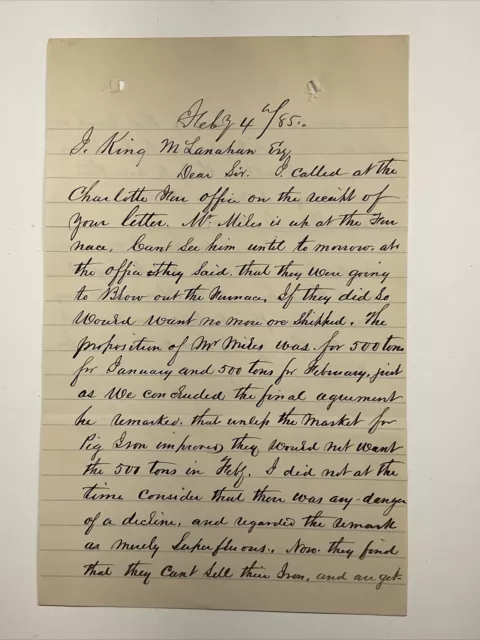 Feby 4th/85.
J. King McLanahan Esq
Dear Sir. I called at the
Charlotte Fur office on the receipt of
your letter. Mr Miles is up at the Fur
nace, Cant see him until to morrow. at
the office they said. that they were going
to Blow out the Furnace, If they did so
would want no more ore shipped. The
proposition of Mr Miles was. for 500 tons
for January and 500 tons for February, just
as we concluded the final agreement
he remarked. that unless the market for
Pig Iron improved they would not want
the 500 tons in Feby. I did not at the
time consider that there was any danger
of a decline, and regarded the remark
as merely superfluous. Now. they find
that they cant sell their Iron, and are get-